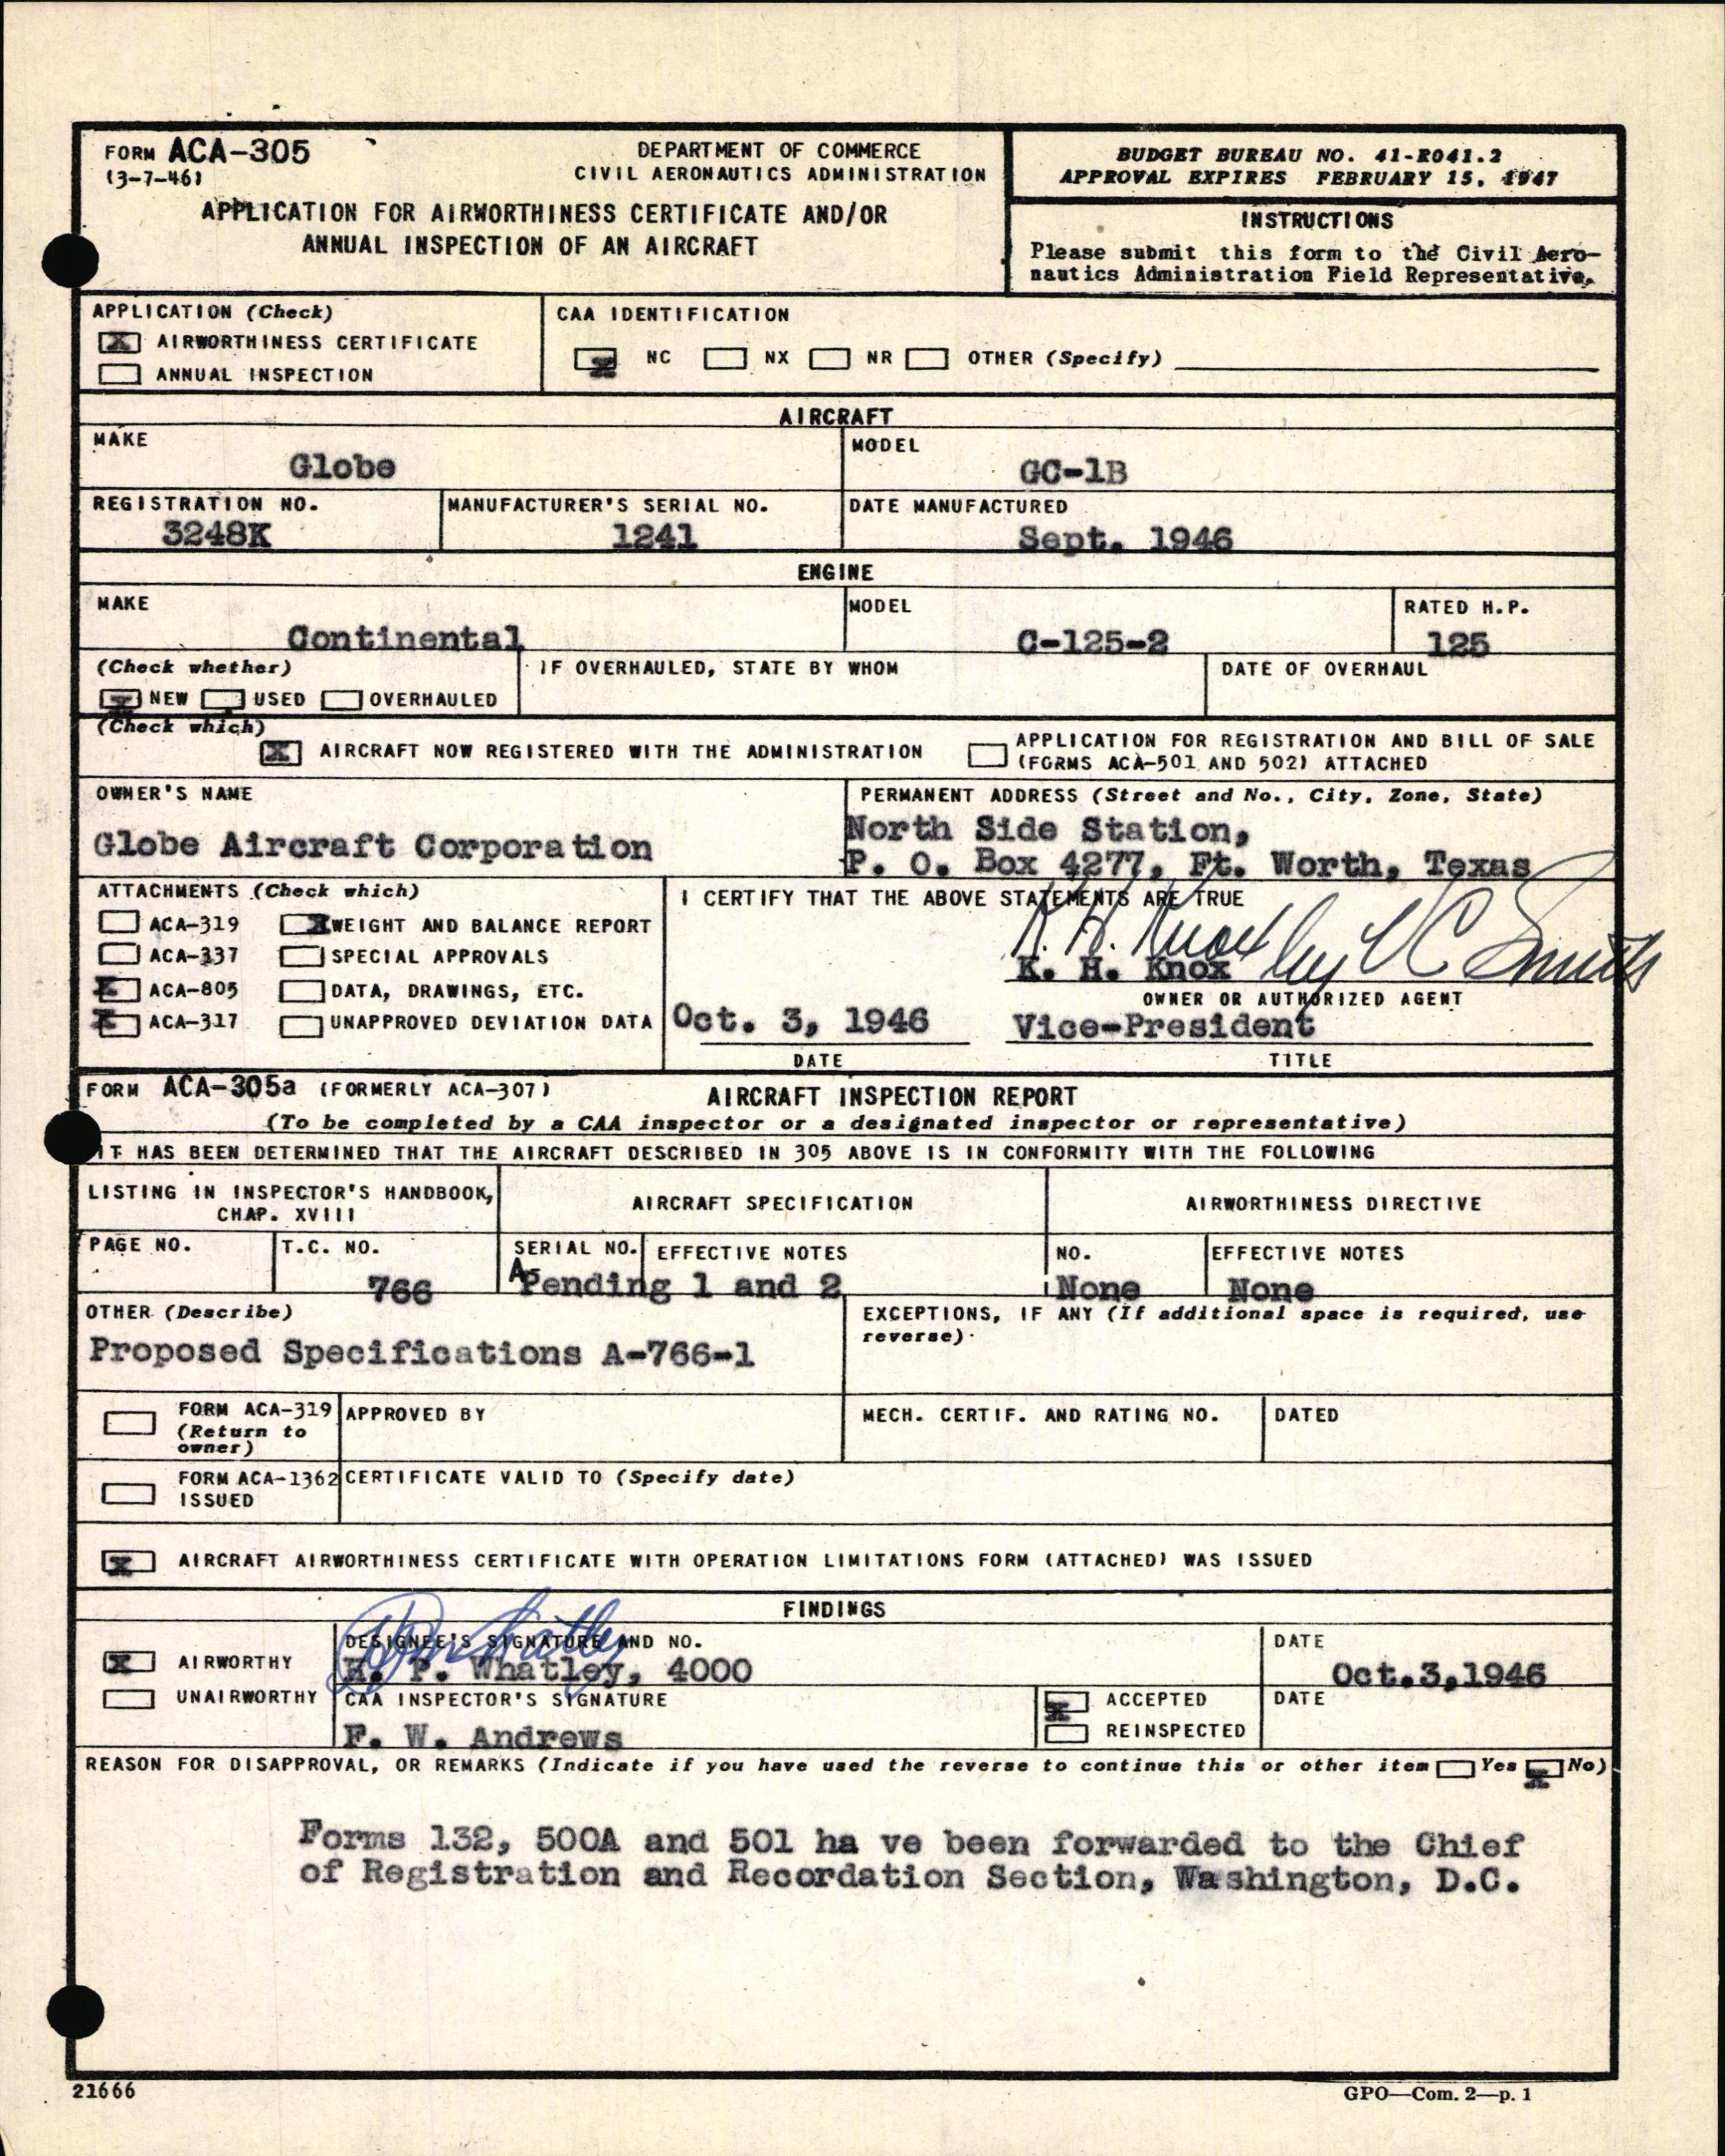 FORM ACA-305
(3-7-46)
DEPARTMENT OF COMMERCE
CIVIL AERONAUTICS ADMINISTRATION
APPLICATION FOR AIRWORTHINESS CERTIFICATE AND/OR
ANNUAL INSPECTION OF AN AIRCRAFT
BUDGET BUREAU NO. 41-R041.2
APPROVAL EXPIRES FEBRUARY 15, 1947
INSTRUCTIONS
Please submit this form to the Civil Aero-
nautics Administration Field Representative.
APPLICATION (Check)
X AIRWORTHINESS CERTIFICATE
ANNUAL INSPECTION
CAA IDENTIFICATION
X NC NX NR OTHER (Specify)
AIRCRAFT
MAKE
Globe
MODEL
GC-1B
REGISTRATION NO.
3248K
MANUFACTURER'S SERIAL NO.
1241
DATE MANUFACTURED
Sept. 1946
ENGINE
MAKE
Continental
MODEL
C-125-2
RATED H.P.
125
(Check whether)
X NEW USED OVERHAULED
IF OVERHAULED, STATE BY WHOM
DATE OF OVERHAUL
(Check which)
X AIRCRAFT NOW REGISTERED WITH THE ADMINISTRATION
APPLICATION FOR REGISTRATION AND BILL OF SALE
(FORMS ACA-501 AND 502) ATTACHED
OWNER'S NAME
Globe Aircraft Corporation
PERMANENT ADDRESS (Street and No., City, Zone, State)
North Side Station,
P. O. Box 4277, Ft. Worth, Texas
ATTACHMENTS (Check which)
ACA-319 X WEIGHT AND BALANCE REPORT
ACA-337 SPECIAL APPROVALS
X ACA-805 DATA, DRAWINGS, ETC.
X ACA-317 UNAPPROVED DEVIATION DATA
I CERTIFY THAT THE ABOVE STATEMENTS ARE TRUE
K. H. Knox by V C Smith
K. H. Knox
OWNER OR AUTHORIZED AGENT
Oct. 3, 1946
Vice-President
DATE
TITLE
FORM ACA-305a (FORMERLY ACA-307)
AIRCRAFT INSPECTION REPORT
(To be completed by a CAA inspector or a designated inspector or representative)
IT HAS BEEN DETERMINED THAT THE AIRCRAFT DESCRIBED IN 305 ABOVE IS IN CONFORMITY WITH THE FOLLOWING
LISTING IN INSPECTOR'S HANDBOOK,
CHAP. XVIII
AIRCRAFT SPECIFICATION
AIRWORTHINESS DIRECTIVE
PAGE NO.
T.C. NO.
766
SERIAL NO.
A-
Pending
EFFECTIVE NOTES
1 and 2
NO.
None
EFFECTIVE NOTES
None
OTHER (Describe)
Proposed Specifications A-766-1
EXCEPTIONS, IF ANY (If additional space is required, use
reverse).
FORM ACA-319
(Return to
owner)
APPROVED BY
MECH. CERTIF. AND RATING NO.
DATED
FORM ACA-1362
ISSUED
CERTIFICATE VALID TO (Specify date)
X AIRCRAFT AIRWORTHINESS CERTIFICATE WITH OPERATION LIMITATIONS FORM (ATTACHED) WAS ISSUED
FINDINGS
X AIRWORTHY
UNAIRWORTHY
DESIGNEE'S SIGNATURE AND NO.
H. P. Whatley, 4000
DATE
Oct.3,1946
CAA INSPECTOR'S SIGNATURE
F. W. Andrews
X ACCEPTED
REINSPECTED
DATE
REASON FOR DISAPPROVAL, OR REMARKS (Indicate if you have used the reverse to continue this or other item Yes X No)
Forms 132, 500A and 501 ha ve been forwarded to the Chief
of Registration and Recordation Section, Washington, D.C.
21666
GPO—Com. 2—p. 1